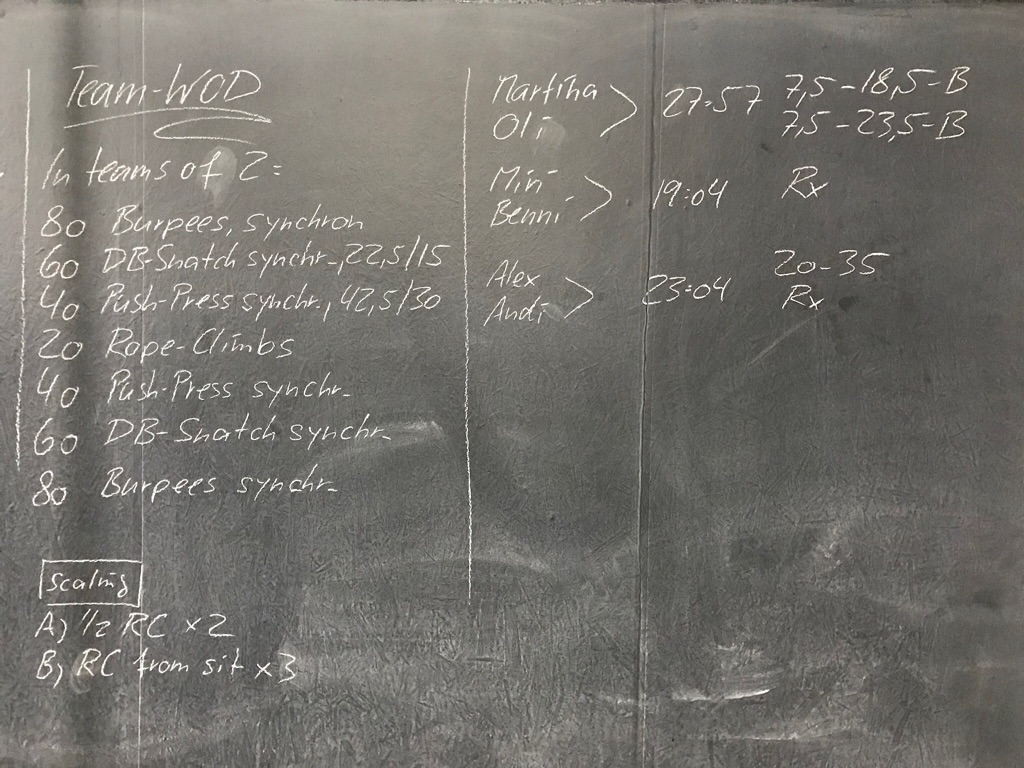 Team-WOD
In teams of 2:
80 Burpees, synchron
60 DB-Snatch synchr., 22,5/15
40 Push-Press synchr., 42,5/30
20 Rope-Climbs
40 Push-Press synchr.
60 DB-Snatch synchr.
80 Burpees synchr.
scaling
A) 1/2 RC x2
B) RC from sit x3
Martina 27:57 7,5-18,5-B
Oli 7,5-23,5-B
Miri 19:04 Rx
Benni
Alex 23:04 20-35
Andi Rx